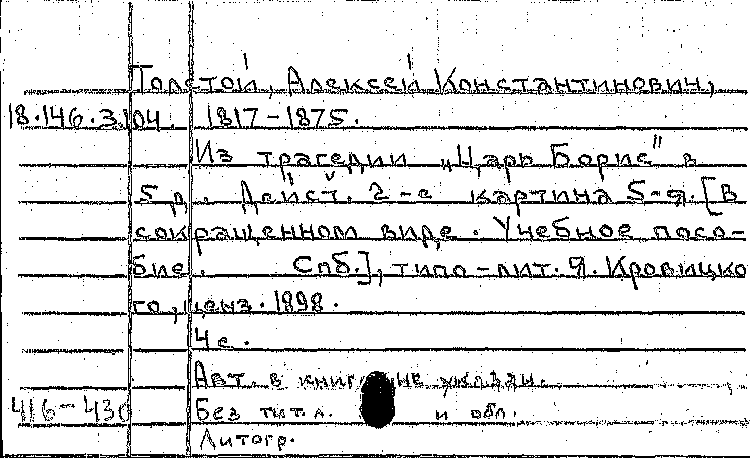 Толстой, Алексей Константинович,
18.146.3.104. 1817-1875.
Из трагедии „Царь Борис" в
5 д. Дейст. 2-е картина 5-я. [В
сокращенном виде. Учебное посо-
бие. Спб.], типо-лит. Я. Кровицко
го, ценз. 1898.
4 с.
Авт. в книге не указан.
416-430 Без тит. л. и обл.
Литогр.